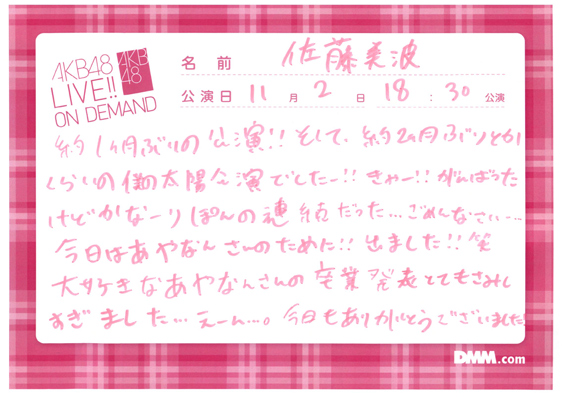 AKB48
LIVE!!
ON DEMAND
AKB
48
名前 佐藤美波
公演日 11月2日 18:30公演
約1ヶ月ぶりの公演!! そして、約2ヶ月ぶりとか
くらいの僕の太陽公演でしたー!! きゃー!! がんばった
けどかなーりぽんの連続だった…ごめんなさいー…
今日はあやなんさんのために!! 出ました!! 笑
大好きなあやなんさんの卒業発表とてもさみし
すぎました…えーん…。今日もありがとうございました!
DMM.com